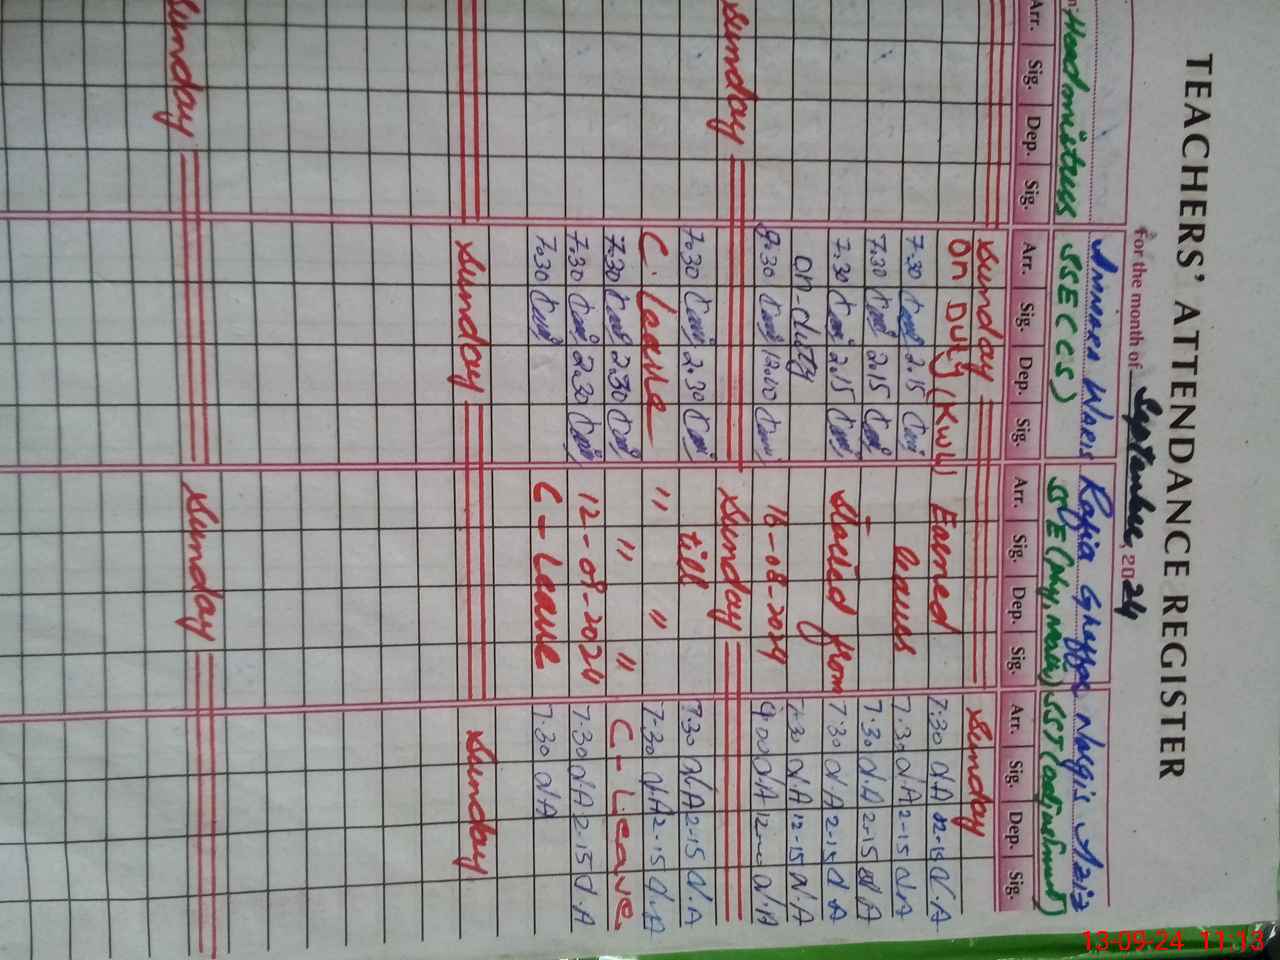 TEACHERS' ATTENDANCE REGISTER
For the month of September, 2024
Ammara Waris Rafia Ghaffar Nargis Aziz
Headmistress SSE(CS) SSE(Phy, Maths) SST
Arr. Sig. Dep. Sig. Arr. Sig. Dep. Sig. Arr. Sig. Dep. Sig. Arr. Sig. Dep. Sig.
Sunday Sunday
On Duty (KWW) Earned 7:30 N.A 02-15 N.A
7.30 2.15 Leaves 7:30 N.A 2-15 N.A
7.30 2.15 7:30 N.A 2-15 N.A
7.30 2.15 Started from 7:30 N.A 2-15 N.A
on-duty 7:30 N.A 12-15 N.A
9.30 12.00 16-08-2024 9:00 N.A N.A
Sunday Sunday
7.30 2.30 till 7.30 N.A 2-15 N.A
C. Leave " " 7-30 N.A 2-15 N.A
7.30 2.30 " " C-Leave
7.30 2.30 12-09-2024 7.30 N.A 2-15 N.A
7.30 C-Leave 7.30 N.A
Sunday Sunday
Sunday Sunday
13-09-24 11:13